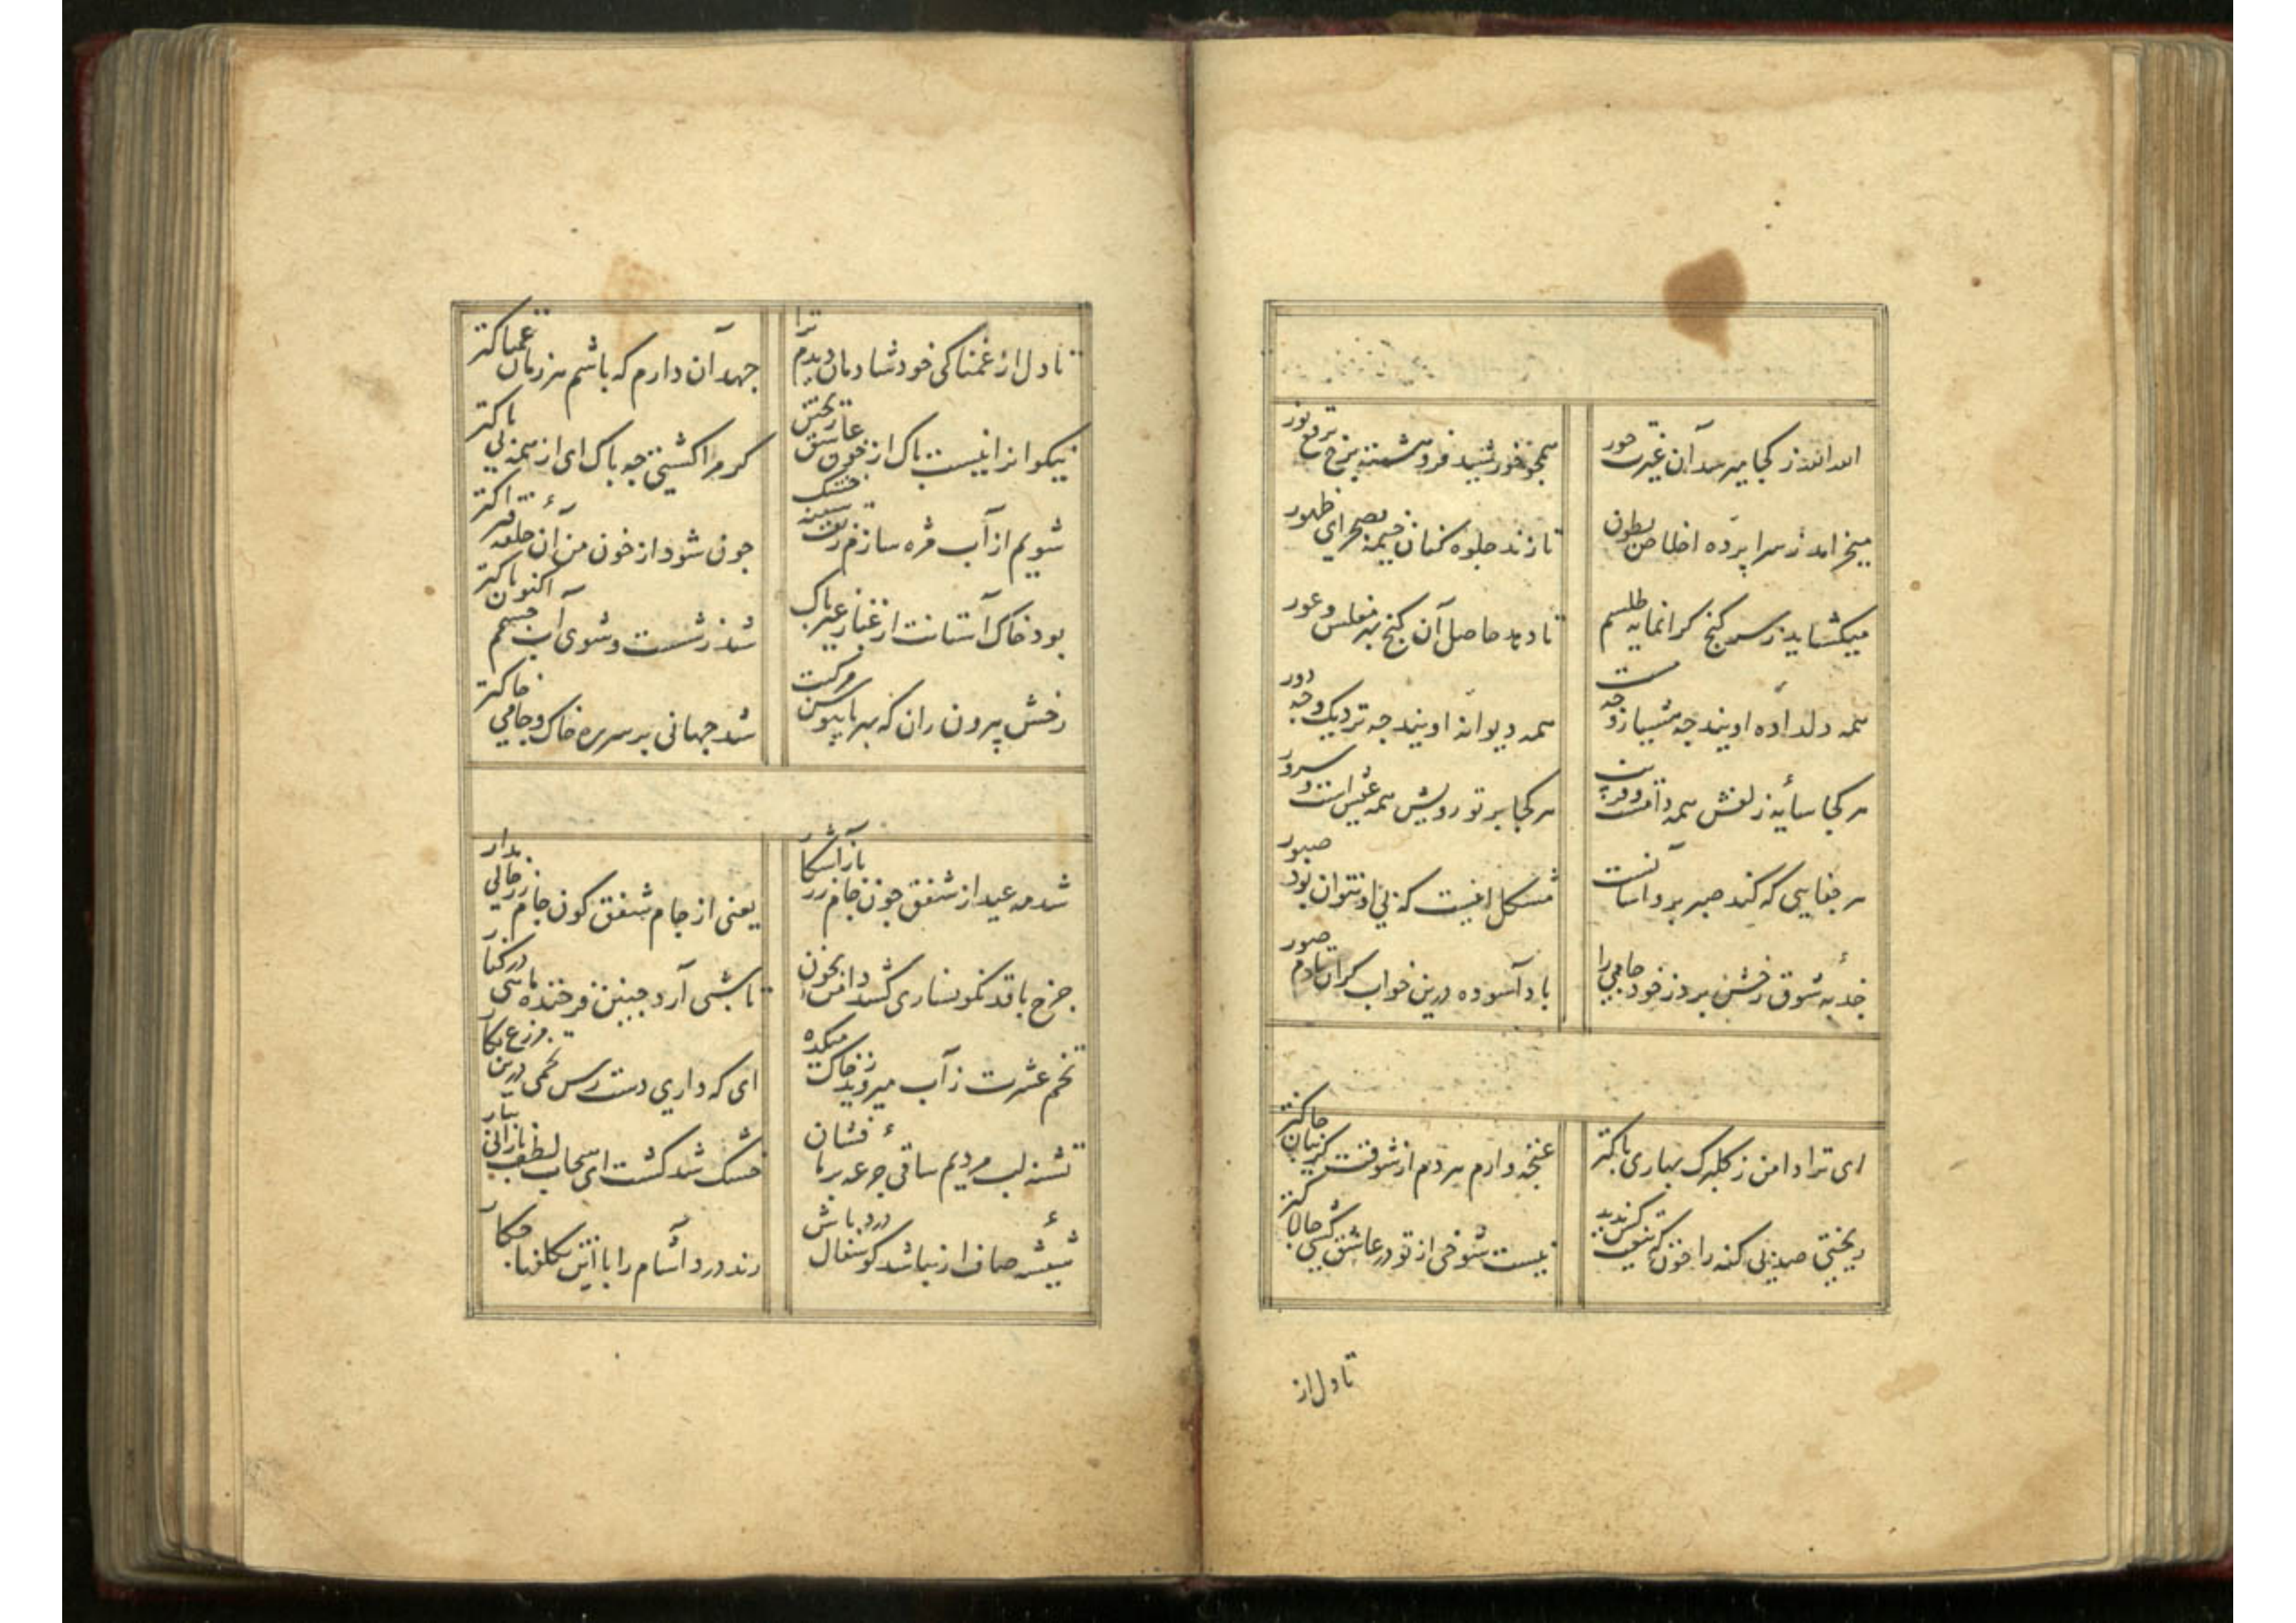 الله الله ز کجا میرسد آن غیرت حور
همچو خورشید فروهشته برخ برقع نور
میخرامد ز سراپرده اخلاص بطون
تا زند جلوه کنان خیمه بصحرای ظهور
میکشاید ز سر کنج کرانمایه طلسم
تا دهد حاصل آن کنج بهر مفلس و عور
همه دلداده اویند چه هشیار و چه مست
همه دیوانه اویند چه نزدیک و چه دور
هر کجا سایه زلفش همه دامست و فریب
هر کجا پرتو رویش همه عیش است و سرور
هر جفایی که کند صبر برو آسانست
مشکل اینست که بی او نتوان بود صبور
جذبه شوق رخش برد ز خود جامی را
باد آسوده درین خواب کران تا دم صور
ای ترا دامن ز کلبرک بهاری پاکتر
غنچه وارم هر دم از شوقت کریبان چاکتر
ریختی صد بی کنه را خون که تیغت کس ندید
نیست شوخی از تو در عاشق کشی چالاکتر
تا دل از
تا دل از غمناکی خود شادمان دیدم ترا
جهد آن دارم که باشم هر زمان غمناکتر
نیکوانرا نیست باک از خون عاشق ریختن
کر مرا کشتی چه باک ای از همه بی باکتر
شویم از آب مژه سازم رقت سینه خشک
چون شود از خون من آن حلقه فتراکتر
بود خاک آستانت از غبار غیر پاک
شد ز شست و شوی آب چشمم اکنون پاکتر
رخش بیرون ران که بهر پایبوس مرکبت
شد جهانی بر سر ره خاک و جامی خاکتر
شد مه عید از شفق چون جام زر باز آشکار
یعنی از جام شفق کون جام زر خالی مدار
چرخ با قد نکونساری کشد دامن بخون
تا بشبی آرد چنین فرخنده ماهی در کنار
تخم عشرت ز آب میروید ز خاک میکده
ای که داری دست رس تخمی درین مزرع بکار
تشنه لب مردیم ساقی جرعه بر ما فشان
خشک شد کشت ای سحاب لطف بارانی ببار
شیشه صاف ار نباشد کو سفال درد باش
رند درد آشام را با این تکلفها چکار